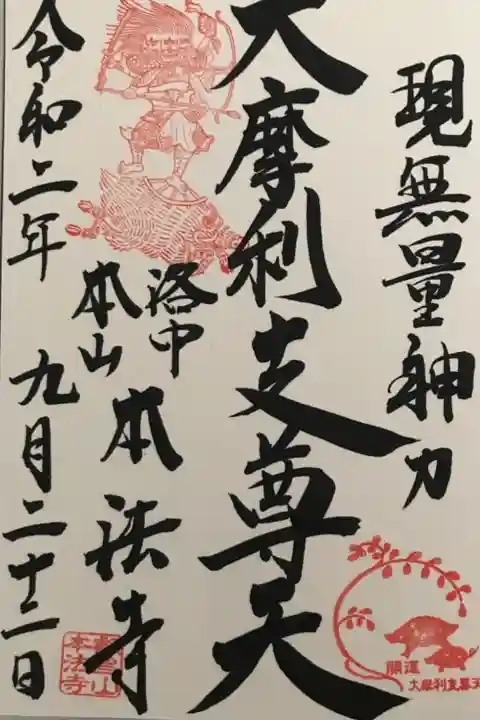 現無量神力
大摩利支尊天
洛中
本山
本法寺
令和二年 九月二十二日
開運
大摩利支尊天
本法寺